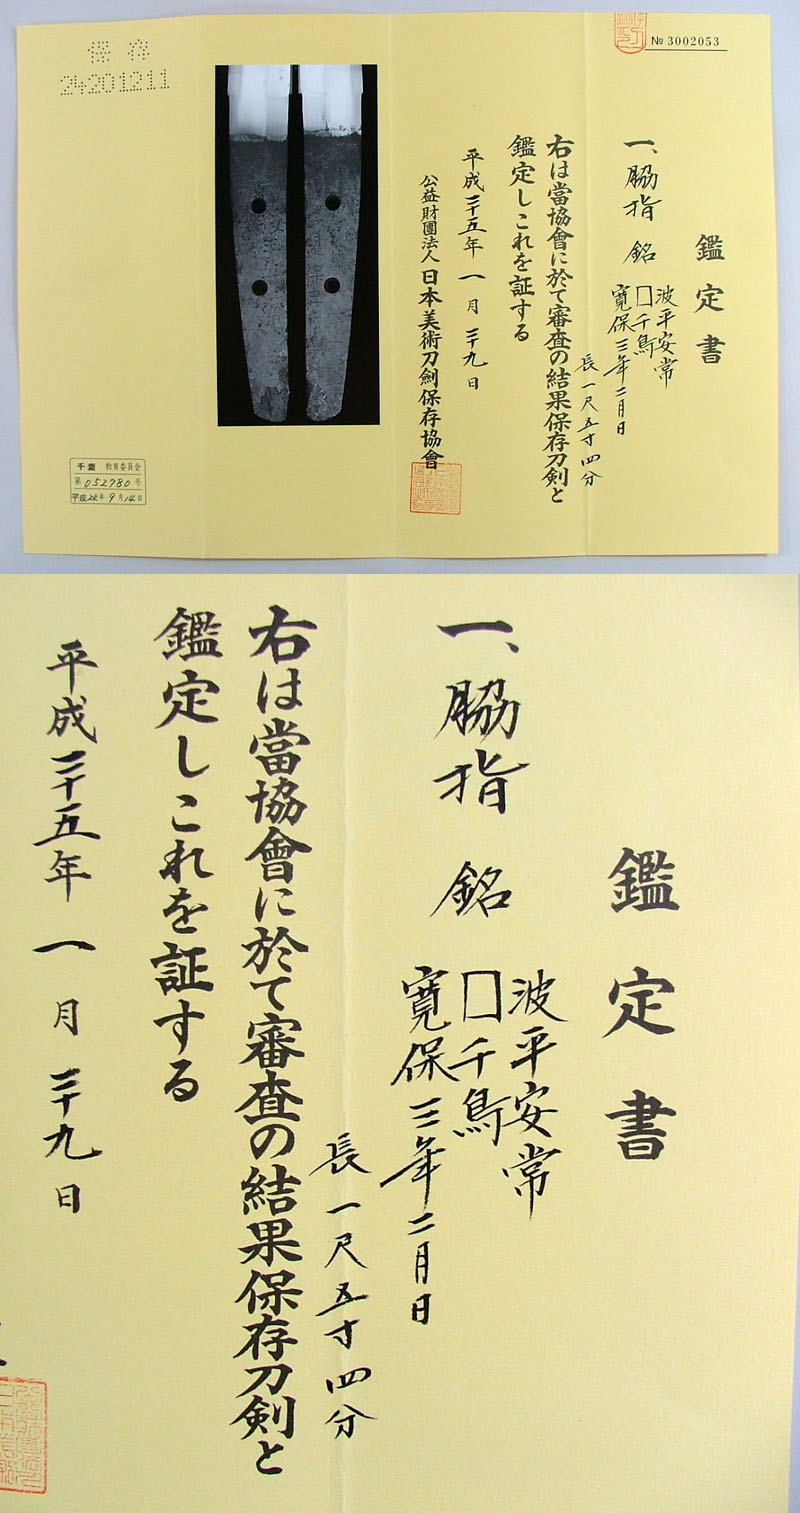 № 3002053
鑑定書
一、脇指 銘 波平安常
□千鳥
寛保三年二月日
長一尺五寸四分
右は當協會に於て審査の結果保存刀剣と
鑑定しこれを証する
平成二十五年一月二十九日
公益財團法人日本美術刀劍保存協會
保存
24201211
千葉 教育委員会
第052780号
平成24年9月14日
鑑定書
一、脇指 銘 波平安常
□千鳥
寛保三年二月日
長一尺五寸四分
右は當協會に於て審査の結果保存刀剣と
鑑定しこれを証する
平成二十五年一月二十九日